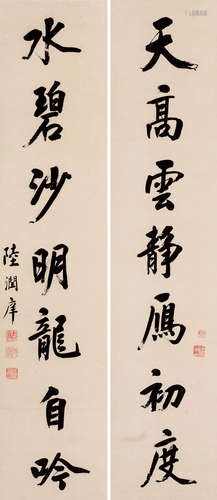 天高雲静鴈初度
水碧沙明龍自吟
陸潤庠